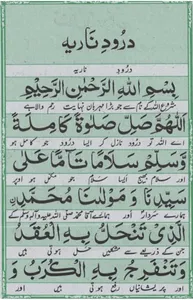 درودِ ناریہ
درودِ ناریہ
بِسْمِ اللهِ الرَّحْمٰنِ الرَّحِيْمِ
شروع اللہ کے نام سے جو بڑا مہربان نہایت رحم والا ہے
اَللّٰهُمَّ صَلِّ صَلٰوةً كَامِلَةً
اے اللہ تو درود نازل کر ایسا درود جو کامل ہو
وَّسَلِّمْ سَلَامًا تَآمًّا عَلٰى
اور سلام بھیج ایسا سلام جو مکمل ہو اوپر
سَيِّدِنَا وَ مَوْلٰنَا مُحَمَّدِنِ
ہمارے سردار اور ہمارے آقا محمد صلی اللہ علیہ وآلہ وسلم کے
الَّذِىْ تَنْحَلُّ بِهِ الْعُقَدُ
جن کے ذریعے سے مشکلیں حل ہوتی ہیں
وَتَنْفَرِجُ بِهِ الْكُرَبُ وَ
اور پریشانیاں ہوتی ہیں اور